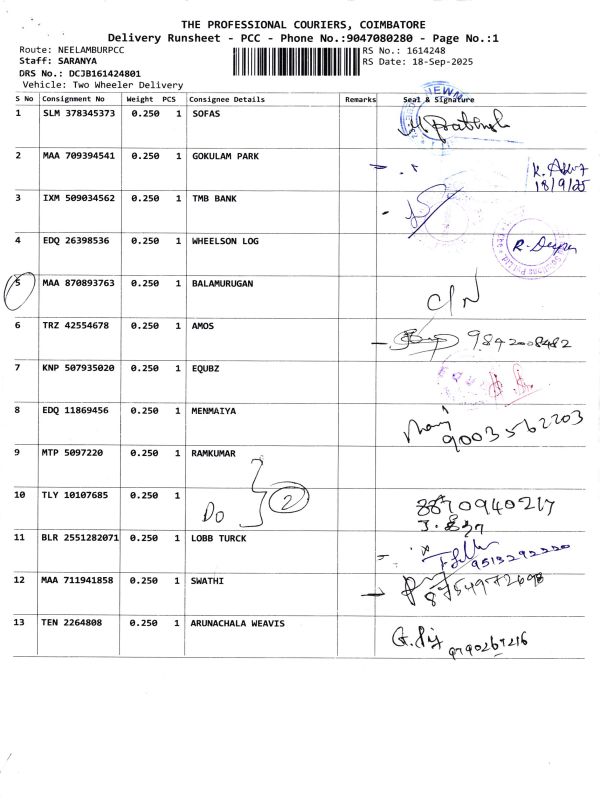 THE PROFESSIONAL COURIERS, COIMBATORE
Delivery Runsheet - PCC - Phone No.:9047080280 - Page No.:1
Route: NEELAMBURPCC RS No.: 1614248
Staff: SARANYA RS Date: 18-Sep-2025
DRS No.: DCJB161424801
Vehicle: Two Wheeler Delivery
S No Consignment No Weight PCS Consignee Details Remarks Seal & Signature
1 SLM 378345373 0.250 1 SOFAS
2 MAA 709394541 0.250 1 GOKULAM PARK
18/9/25
3 IXM 509034562 0.250 1 TMB BANK
4 EDQ 26398536 0.250 1 WHEELSON LOG
5 MAA 870893763 0.250 1 BALAMURUGAN C/N
6 TRZ 42554678 0.250 1 AMOS 9842008482
7 KNP 507935020 0.250 1 EQUBZ
8 EDQ 11869456 0.250 1 MENMAIYA 9003562203
9 MTP 5097220 0.250 1 RAMKUMAR
10 TLY 10107685 0.250 1 Do 2 8870940217
11 BLR 2551282071 0.250 1 LOBB TURCK 9513292220
12 MAA 711941858 0.250 1 SWATHI 8754972698
13 TEN 2264808 0.250 1 ARUNACHALA WEAVIS 9790267216